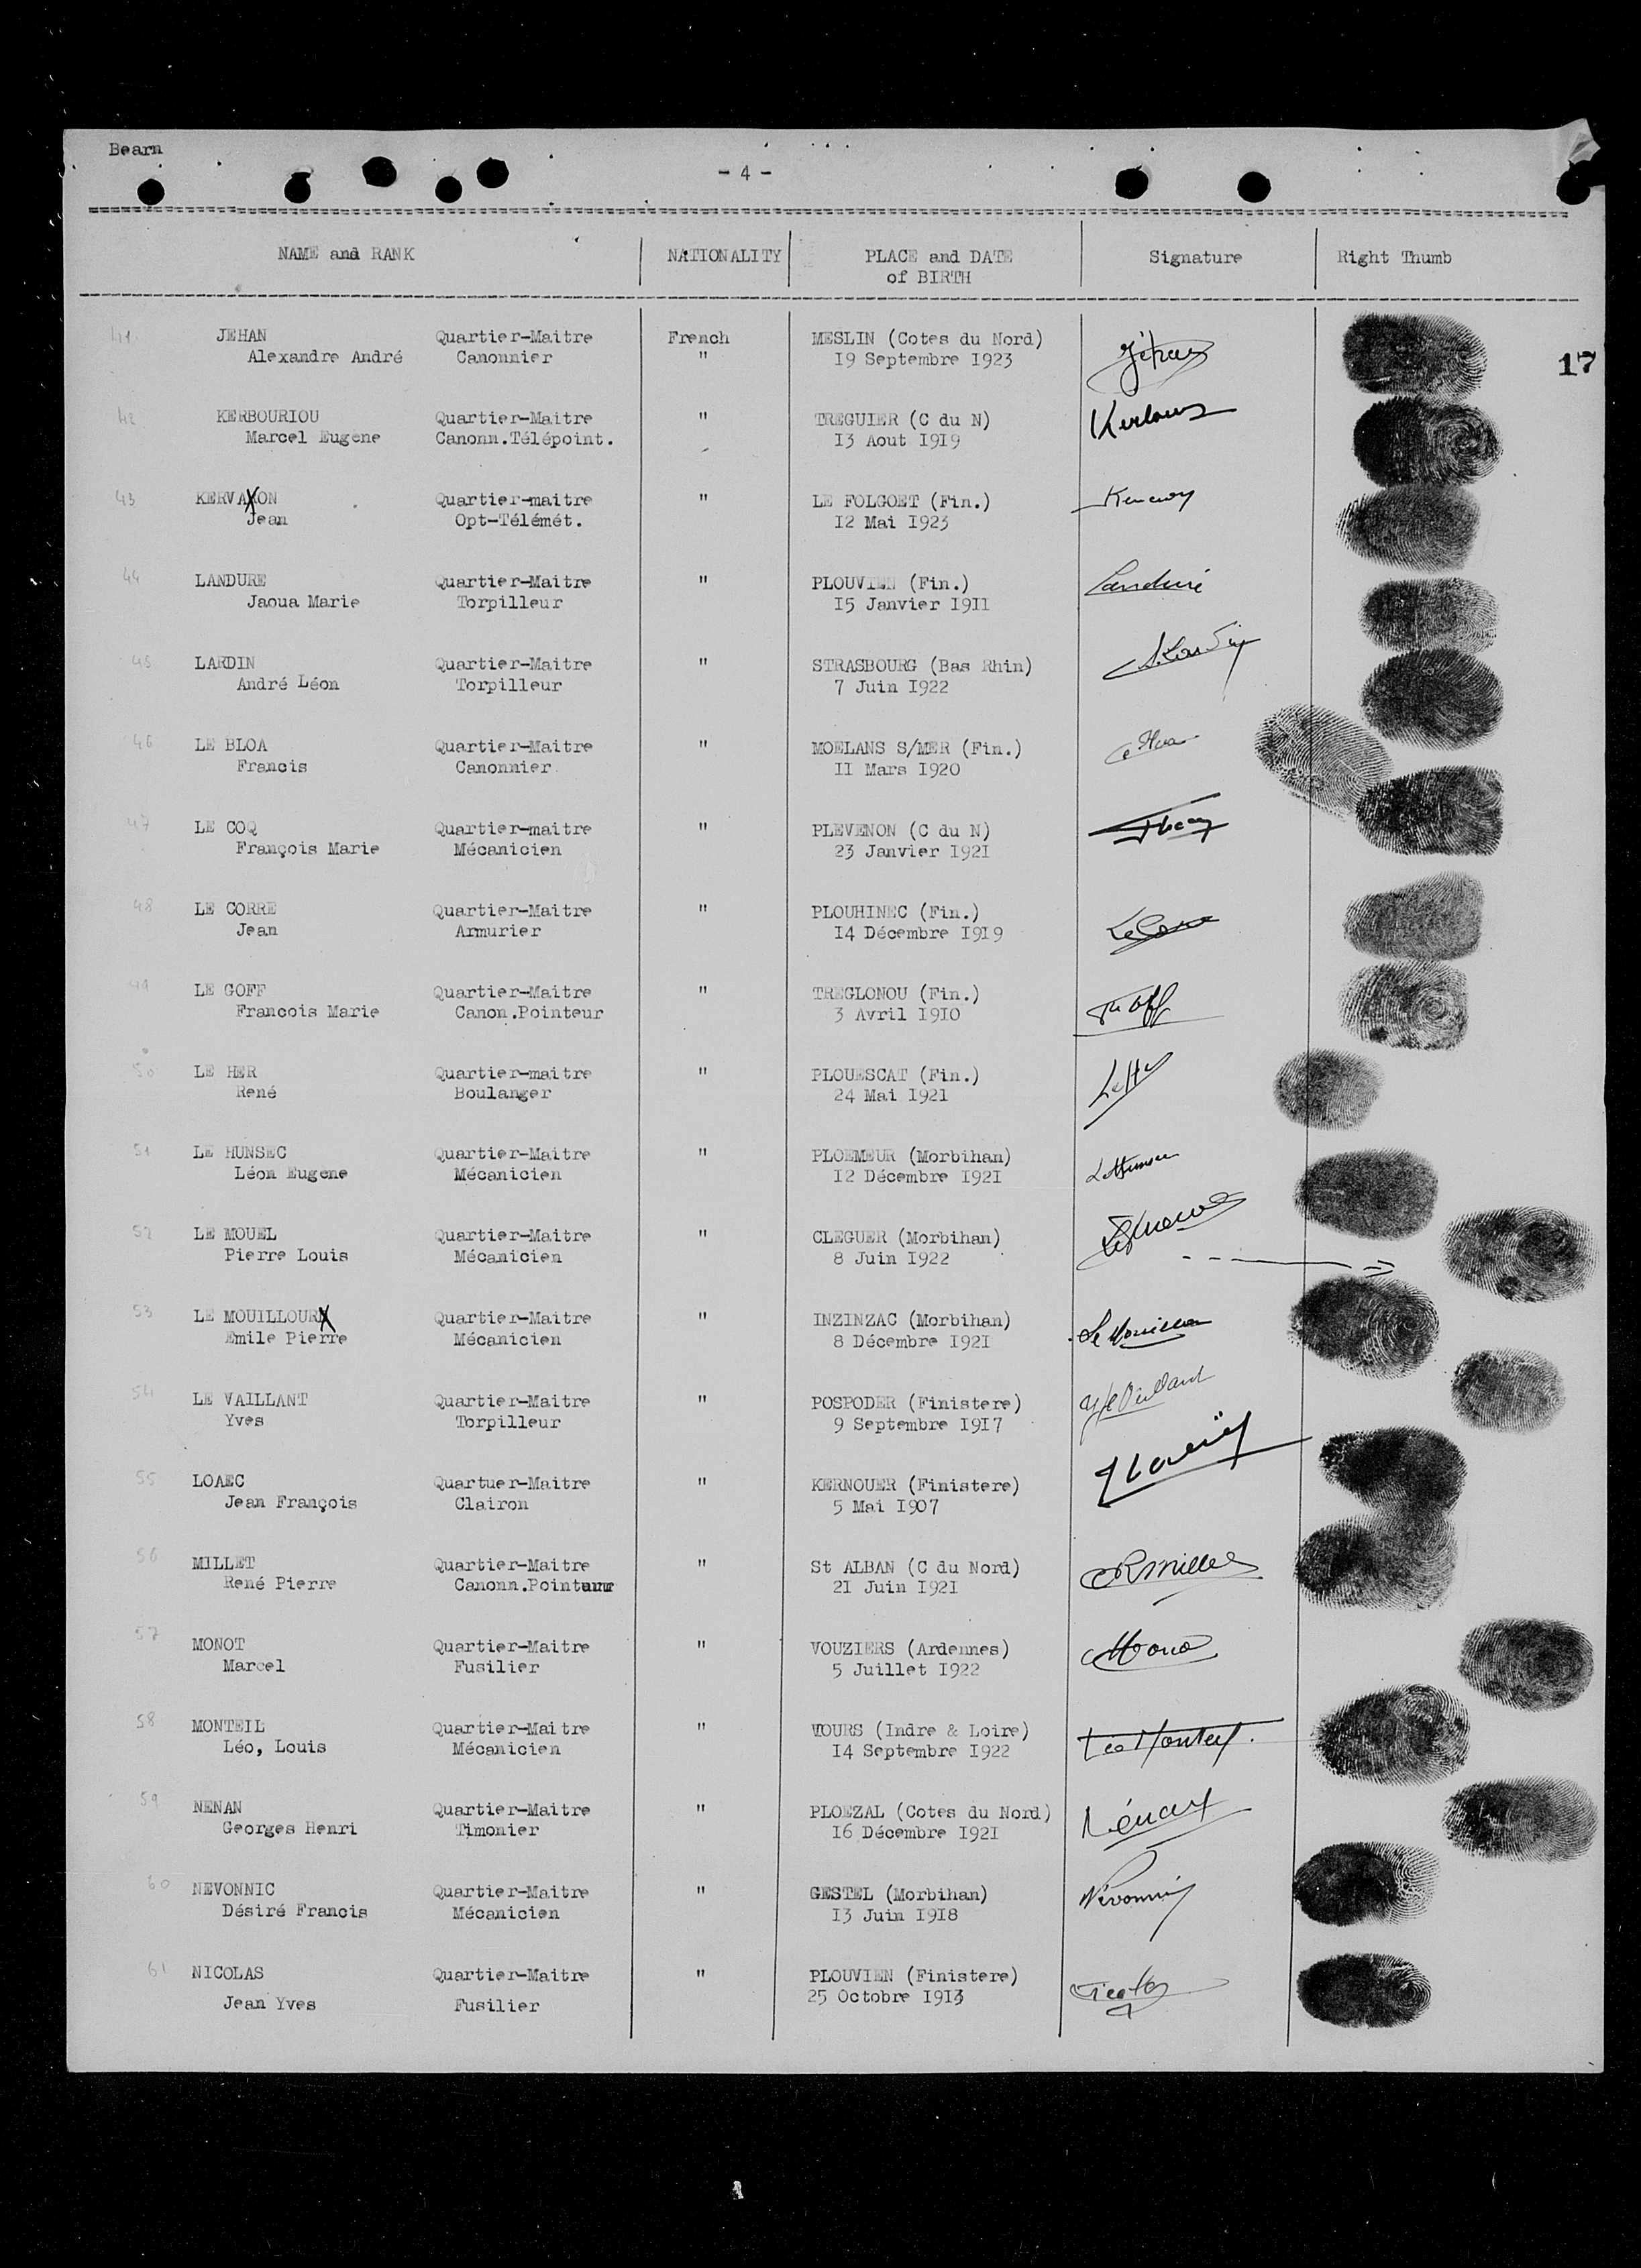 Bearn
- 4 -
NAME and RANK NATIONALITY PLACE and DATE of BIRTH Signature Right Thumb
41 JEHAN Quartier-Maitre French MESLIN (Cotes du Nord)
Alexandre André Canonnier " 19 Septembre 1923
17
42 KERBOURIOU Quartier-Maitre " TREGUIER (C du N)
Marcel Eugene Canonn.Télépoint. 13 Aout 1919
43 KERVAXON Quartier-maitre " LE FOLGOET (Fin.)
Jean Opt-Télémét. 12 Mai 1923
44 LANDURE Quartier-Maitre " PLOUVIEN (Fin.) Landuré
Jaoua Marie Torpilleur 15 Janvier 1911
45 LARDIN Quartier-Maitre " STRASBOURG (Bas Rhin)
André Léon Torpilleur 7 Juin 1922
46 LE BLOA Quartier-Maitre " MOELANS S/MER (Fin.)
Francis Canonnier 11 Mars 1920
47 LE COQ Quartier-maitre " PLEVENON (C du N)
François Marie Mécanicien 23 Janvier 1921
48 LE CORRE Quartier-Maitre " PLOUHINEC (Fin.)
Jean Armurier 14 Décembre 1919
49 LE GOFF Quartier-Maitre " TREGLONOU (Fin.)
Francois Marie Canon.Pointeur 3 Avril 1910
50 LE HER Quartier-maitre " PLOUESCAT (Fin.)
René Boulanger 24 Mai 1921
51 LE HUNSEC Quartier-Maitre " PLOEMEUR (Morbihan)
Léon Eugene Mécanicien 12 Décembre 1921
52 LE MOUEL Quartier-Maitre " CLEGUER (Morbihan)
Pierre Louis Mécanicien 8 Juin 1922
53 LE MOUILLOUR Quartier-Maitre " INZINZAC (Morbihan)
Emile Pierre Mécanicien 8 Décembre 1921
54 LE VAILLANT Quartier-Maitre " POSPODER (Finistere)
Yves Torpilleur 9 Septembre 1917
55 LOAEC Quartuer-Maitre " KERNOUER (Finistere)
Jean François Clairon 5 Mai 1907
56 MILLET Quartier-Maitre " St ALBAN (C du Nord)
René Pierre Canonn.Pointeur 21 Juin 1921
57 MONOT Quartier-Maitre " VOUZIERS (Ardennes)
Marcel Fusilier 5 Juillet 1922
58 MONTEIL Quartier-Maitre " TOURS (Indre & Loire) Léo Monteil.
Léo, Louis Mécanicien 14 Septembre 1922
59 NENAN Quartier-Maitre " PLOEZAL (Cotes du Nord) Nénan
Georges Henri Timonier 16 Décembre 1921
60 NEVONNIC Quartier-Maitre " GESTEL (Morbihan)
Désiré Francis Mécanicien 13 Juin 1918
61 NICOLAS Quartier-Maitre " PLOUVIEN (Finistere)
Jean Yves Fusilier 25 Octobre 1913